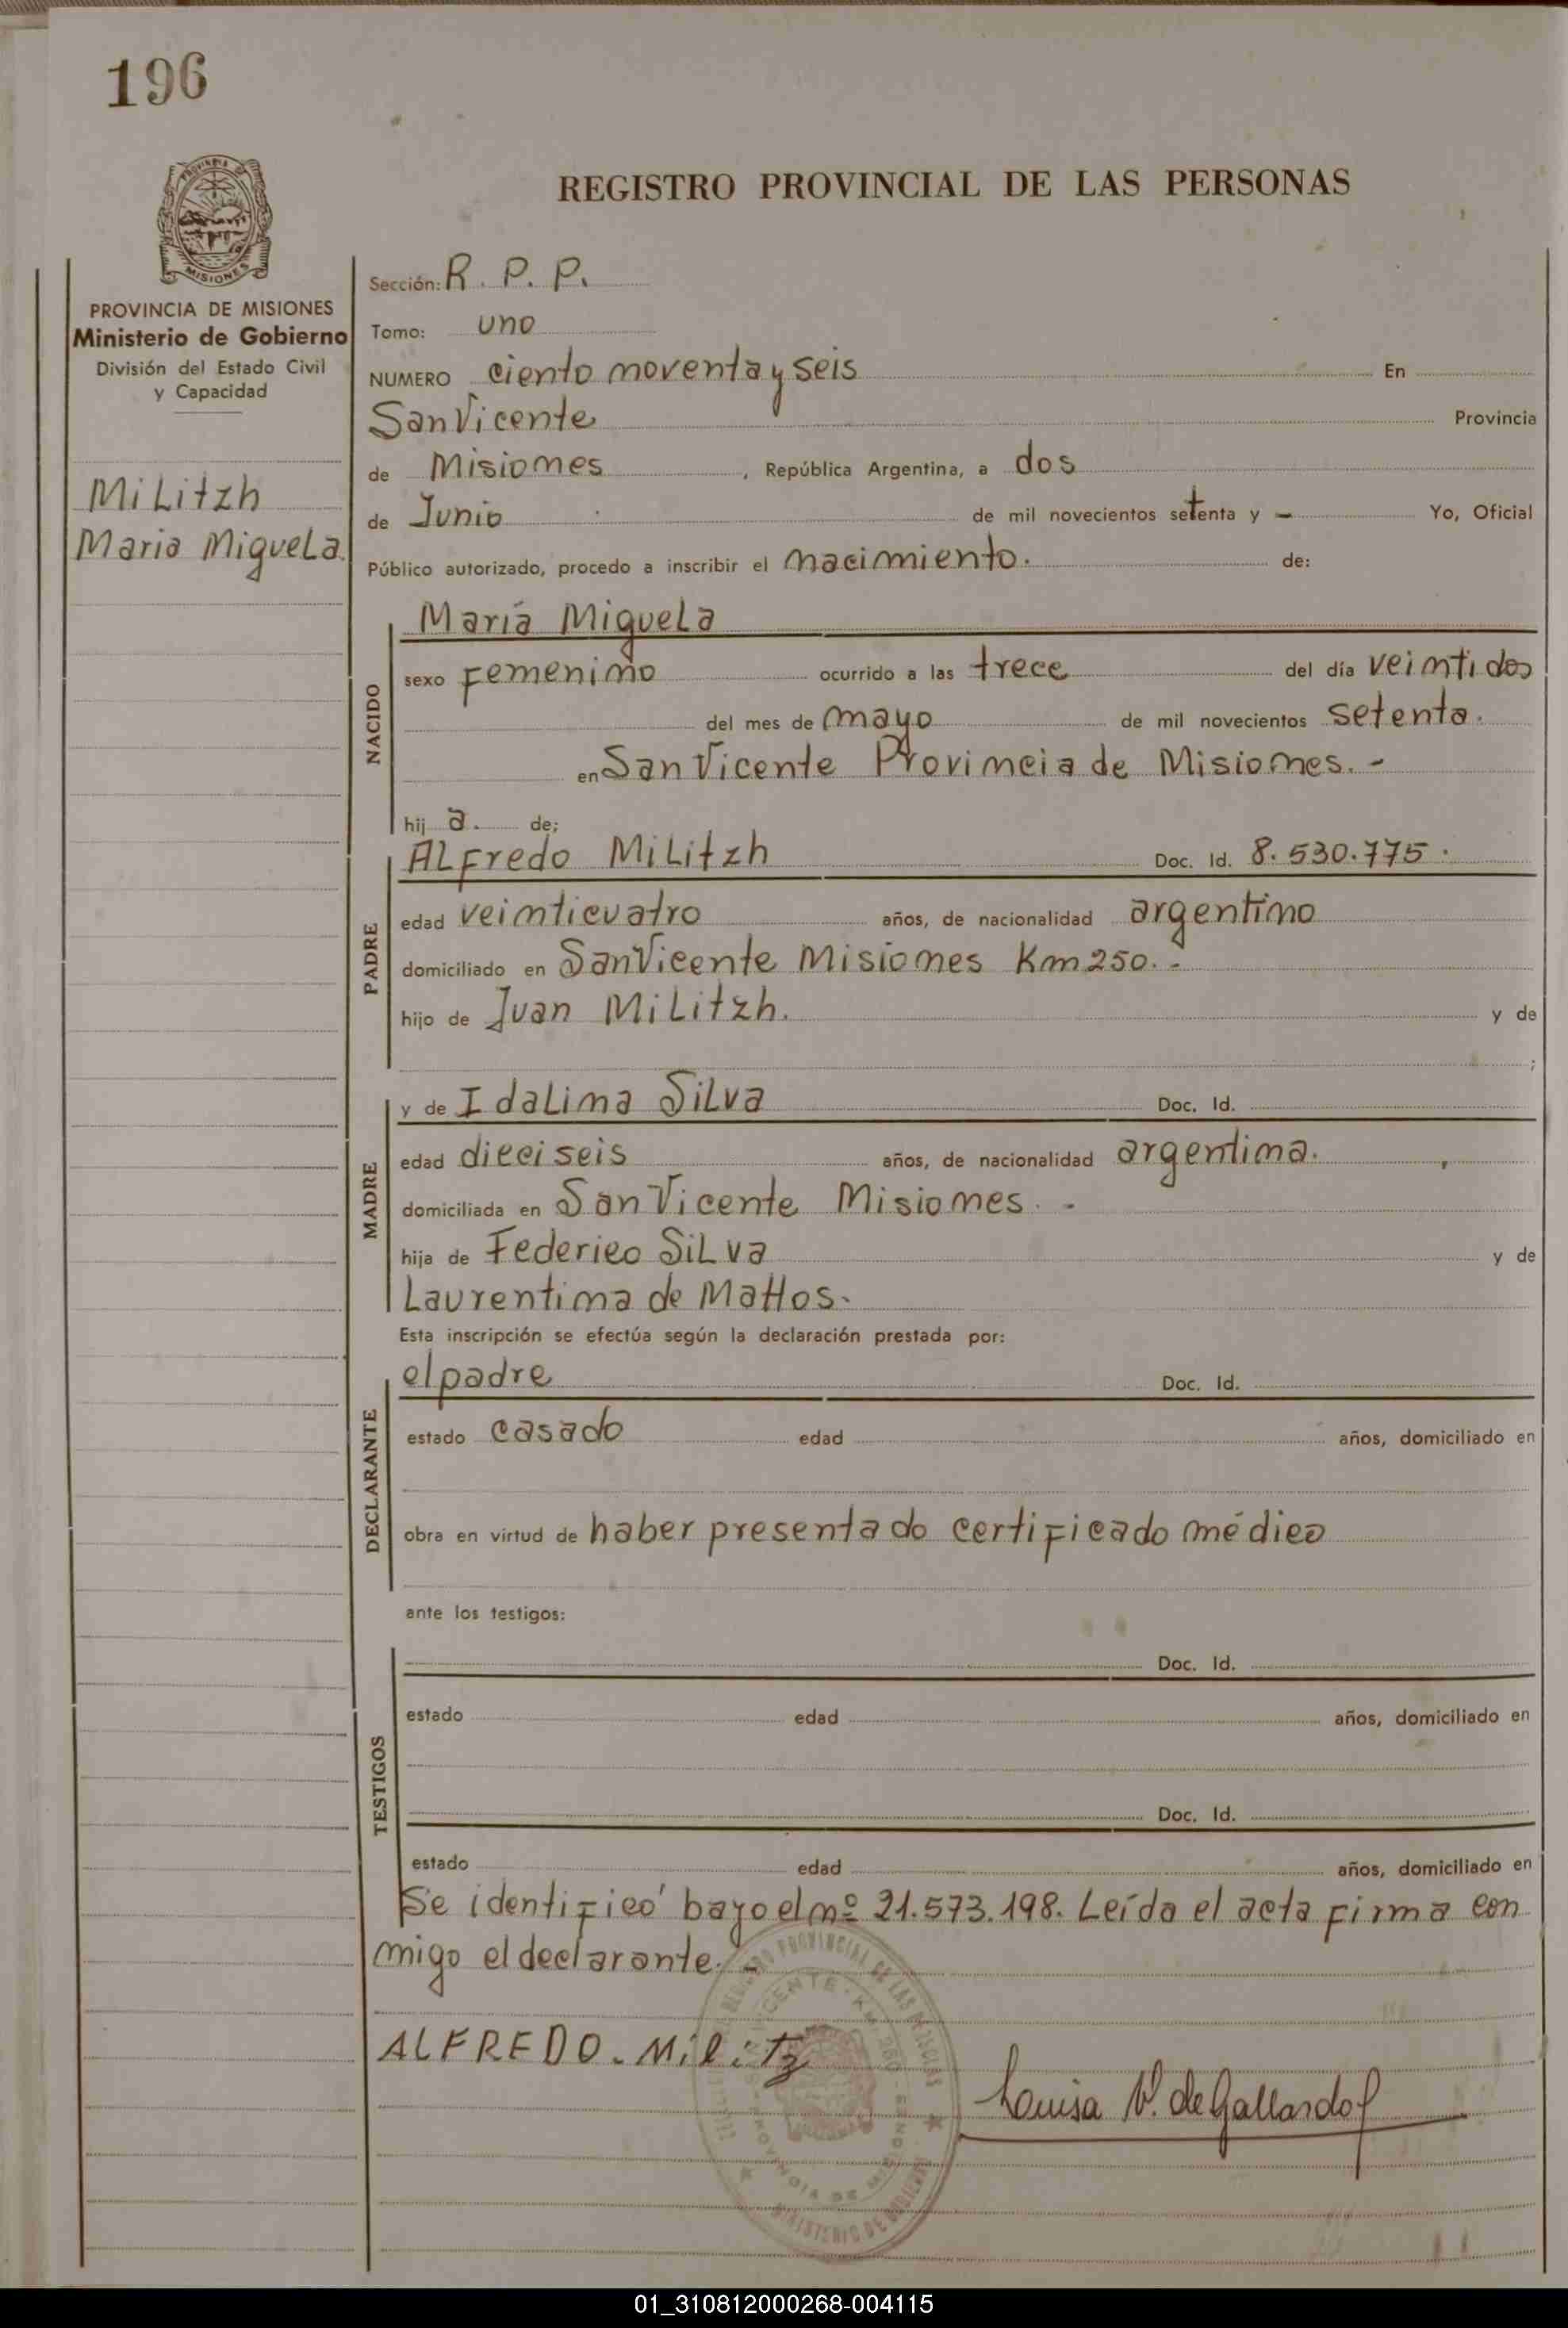 196
PROVINCIA DE MISIONES
Ministerio de Gobierno
División del Estado Civil
y Capacidad
MiLitzh
Maria MigueLa.
REGISTRO PROVINCIAL DE LAS PERSONAS
Sección: R. P. P.
Tomo: uno
NUMERO ciento noventa y seis En
San Vicente Provincia
de Misiones, República Argentina, a dos
de Junio de mil novecientos setenta y - Yo, Oficial
Público autorizado, procedo a inscribir el nacimiento. de:
NACIDO
María MigueLa
sexo Femenino ocurrido a las trece del día veintidos
del mes de mayo de mil novecientos setenta.
en San Vicente Provincia de Misiones. -
hij a. de;
PADRE
ALFredo MiLitzh Doc. Id. 8.530.775.
edad veinticuatro años, de nacionalidad argentino
domiciliado en San Vicente Misiones Km 250. -
hijo de Juan MiLitzh. y de
;
MADRE
y de IdaLina SiLva Doc. Id.
edad dieciseis años, de nacionalidad argentina.
domiciliada en San Vicente Misiones. -
hija de Federico SiLva y de
Laurentina de Mattos.
Esta inscripción se efectúa según la declaración prestada por:
DECLARANTE
el padre Doc. Id.
estado casado edad años, domiciliado en
obra en virtud de haber presentado certificado médico
ante los testigos:
TESTIGOS
Doc. Id.
estado edad años, domiciliado en
Doc. Id.
estado edad años, domiciliado en
Se identificó bayo el nº 21.573.198. Leída el acta firma con
migo el declarante. -
ALFREDO. Militz
Louisa V. de Gallardo
REGISTRO PROVINCIAL DE LAS PERSONAS
MINISTERIO DE GOBIERNO
PROVINCIA DE MISIONES
01_310812000268-004115